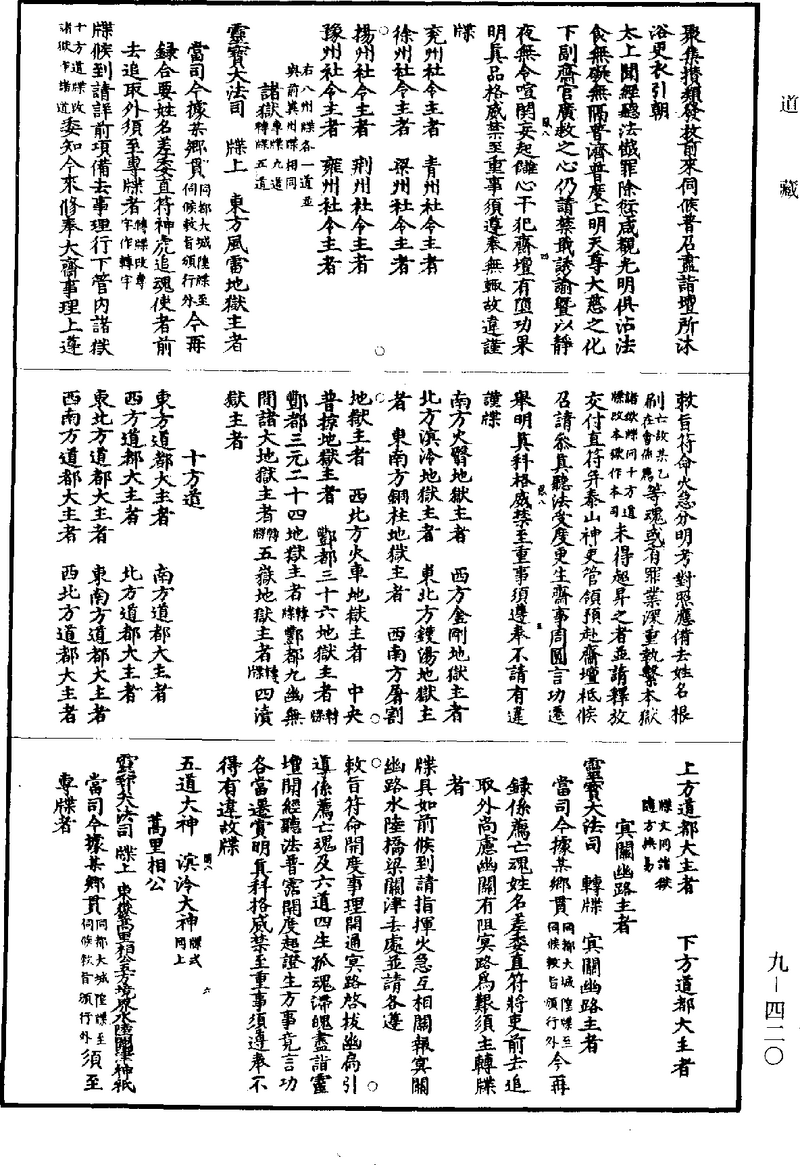 道藏
聚集攢類發放前來伺候普召盡詣壇所沐
浴更衣引朝
太上聞經聽法懺罪除愆咸覩光明俱沾法
食無礙無隔普濟普度上明天尊大慈之化
下副齋官廣救之心仍請禁戢誘諭曁以靜
夜無令喧鬧妄起讎心干犯齋壇有隳功果
明真品格威禁至重事須遵奉無輙故違謹
牒
兖州社令主者　青州社令主者
徐州社令主者　梁州社令主者
揚州社令主者　荆州社令主者
豫州社令主者　雍州社令主者
右八州牒各一道並
與前冀州牒相同
諸獄專牒九道
轉牒五道
靈寶大法司　牒上　東方風雷地獄主者
當司今據某鄉貫同都大城隍牒至
伺候敕旨頒行外今再
録合要姓名差委直符神虎追魂使者前
去追取外須至專牒者轉牒改專
字作轉字
牒候到請詳前項備去事理行下管內諸獄
十方道牒改
諸獄作諸道委知今來修奉大齋事理上遵
敕旨符命火急分明考對照應備去姓名根
刷亡故某乙
在會係薦等魂或有罪業深重執繫本獄
諸獄牒同十方道
牒改本獄作本司未得超昇之者並請釋放
交付直符幷泰山神吏管領預赴齋壇祗候
召請叅真聽法受度更生齋事周圓言功遷
舉明真科格威禁至重事須遵奉不請有違
謹牒
南方火醫地獄主者　西方金剛地獄主者
北方溟泠地獄主者　東北方鑊湯地獄主
者　東南方銅柱地獄主者　西南方屠割
地獄主者　西北方火車地獄主者　中央
普掠地獄主者　酆都三十六地獄主者轉牒
酆都三元二十四地獄主者轉牒酆都九幽無
間諸大地獄主者轉牒五嶽地獄主者轉牒四瀆
獄主者
十方道
東方道都大主者　南方道都大主者
西方道都大主者　北方道都大主者
東北方道都大主者　東南方道都大主者
西南方道都大主者　西北方道都大主者
上方道都大主者　下方道都大主者
牒文同諸獄
隨方換易
冥關幽路主者
靈寶大法司　轉牒　冥關幽路主者
當司今據某鄉貫同都大城隍牒至
伺候敕旨頒行外今再
録係薦亡魂姓名差委直符將吏前去追
取外尚慮幽關有阻冥路爲艱須主轉牒
者
牒具如前候到請指揮火急互相關報冥關
幽路水陸橋梁關津去處並請各遵
敕旨符命開度事理開通冥路啓拔幽扄引
導係薦亡魂及六道四生孤魂滯魄盡詣靈
壇聞經聽法普霑開度超證生方事竟言功
各當還賞明真科格威禁至重事須遵奉不
得有違故牒
五道大神　溟泠大神牒式
同上
蒿里相公
靈寶大法司　牒上　東嶽蒿里相公方境界水陸關津神祇
當司今據某鄉貫同都大城隍牒至
伺候敕旨頒行外須至
專牒者
九－四二〇